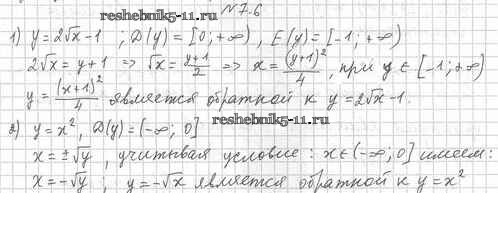 reshebnik5-11.ru №7.6
1) y = 2√x - 1 ; D(y) = [0; +∞) , E(y) = [-1; +∞)
2√x = y + 1 => √x = (y+1)/2 => x = (y+1)²/4 , при y ∈ [-1; +∞)
y = (x+1)²/4 является обратной к y = 2√x - 1.
reshebnik5-11.ru
2) y = x² , D(y) = (-∞; 0]
x = ±√y , учитывая условие : x ∈ (-∞; 0] имеем:
x = -√y ; y = -√x является обратной к y = x²